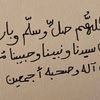 اللهم صل وسلم وبارك
سيدنا ونبينا وحبيبنا
آله وصحبه أجمعين